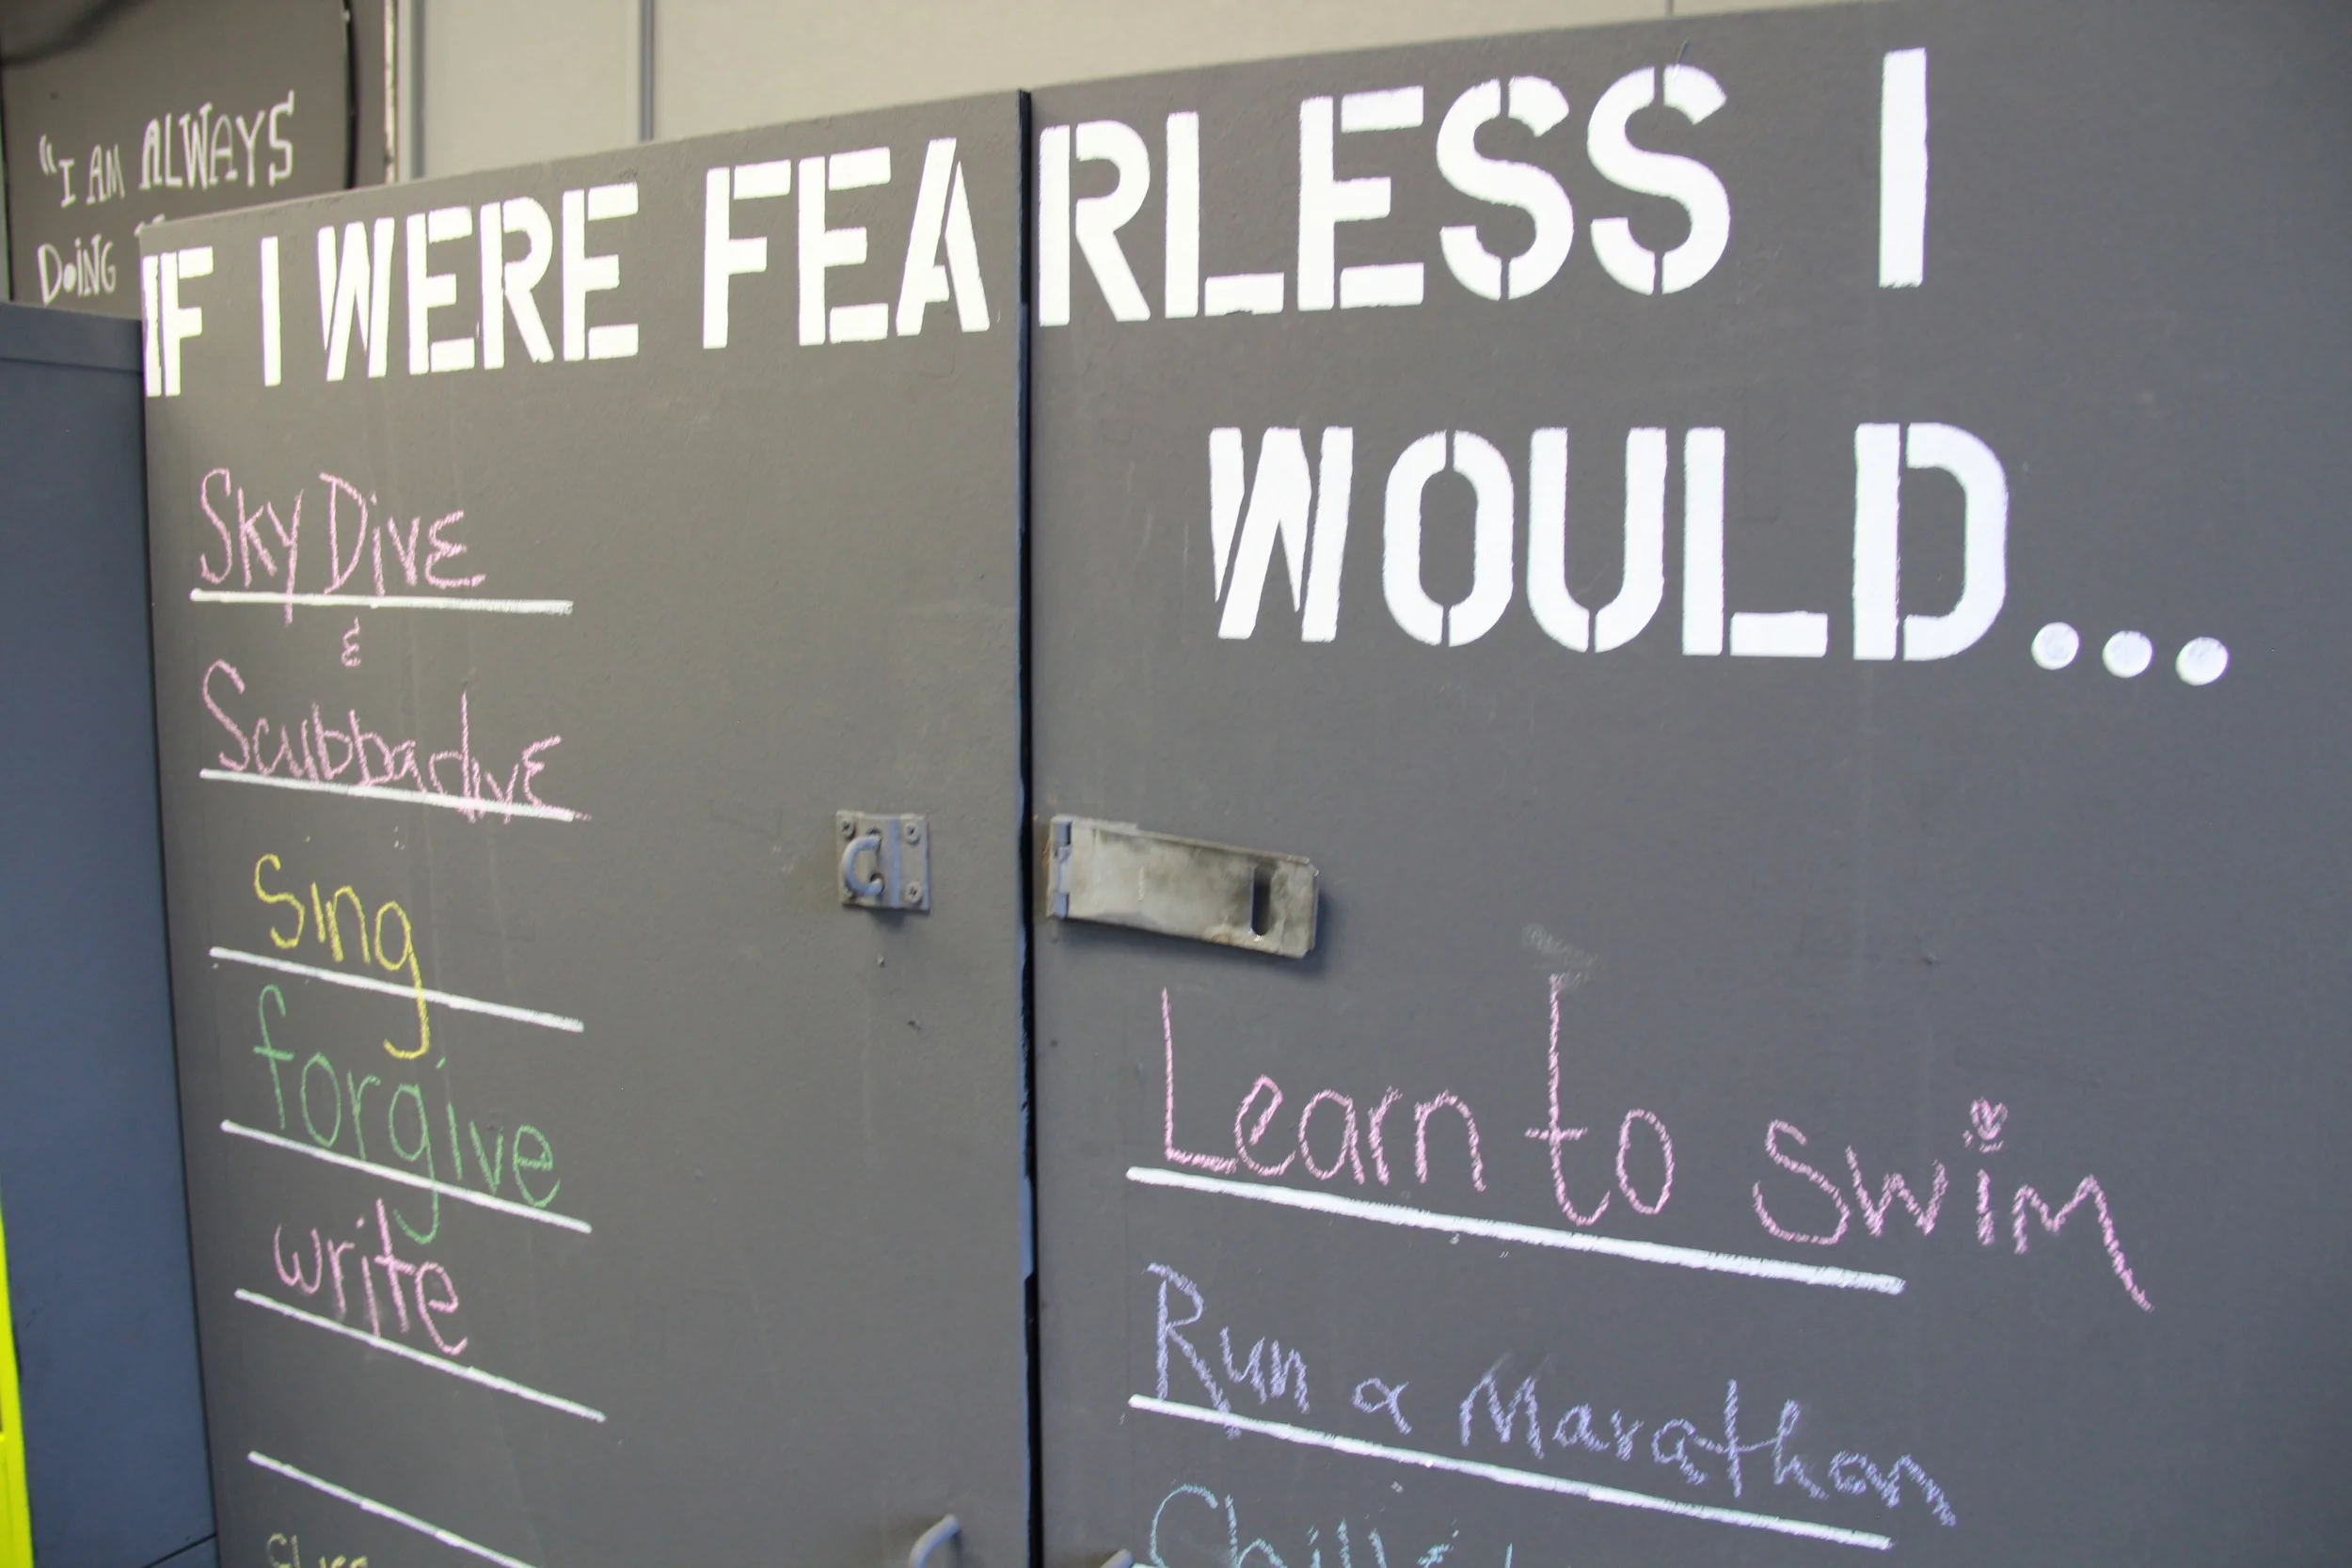 "I AM ALWAYS
DOING
IF I WERE FEARLESS I
WOULD...
Sky Dive
&
Scubbadive
Sing
forgive
write
Learn to swim
Run a Marathon